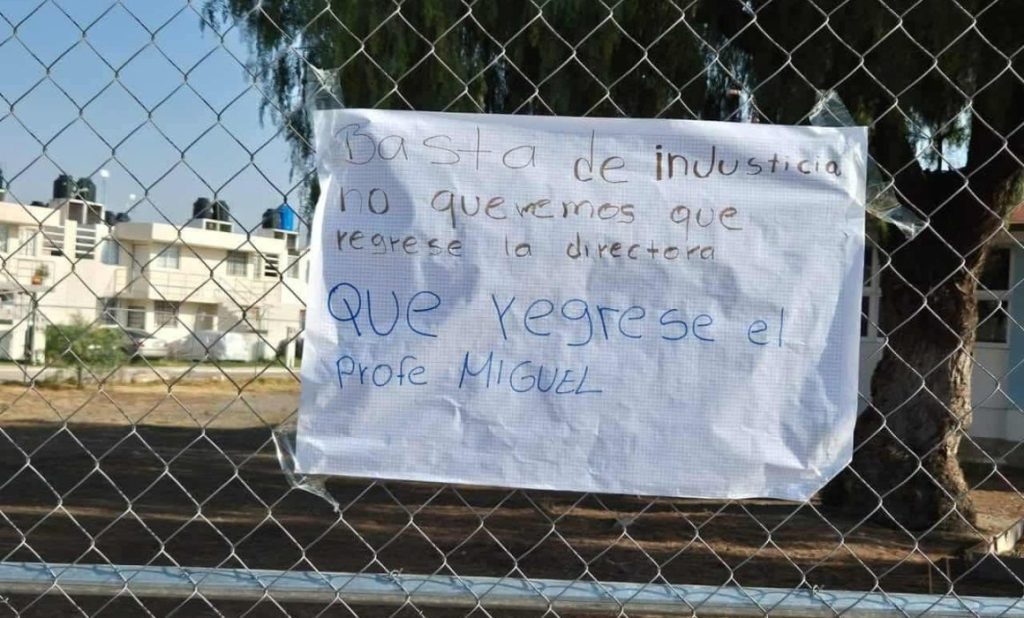 Basta de inJusticia
no queremos que
regrese la directora
QUE regrese el
Profe MIGUEL